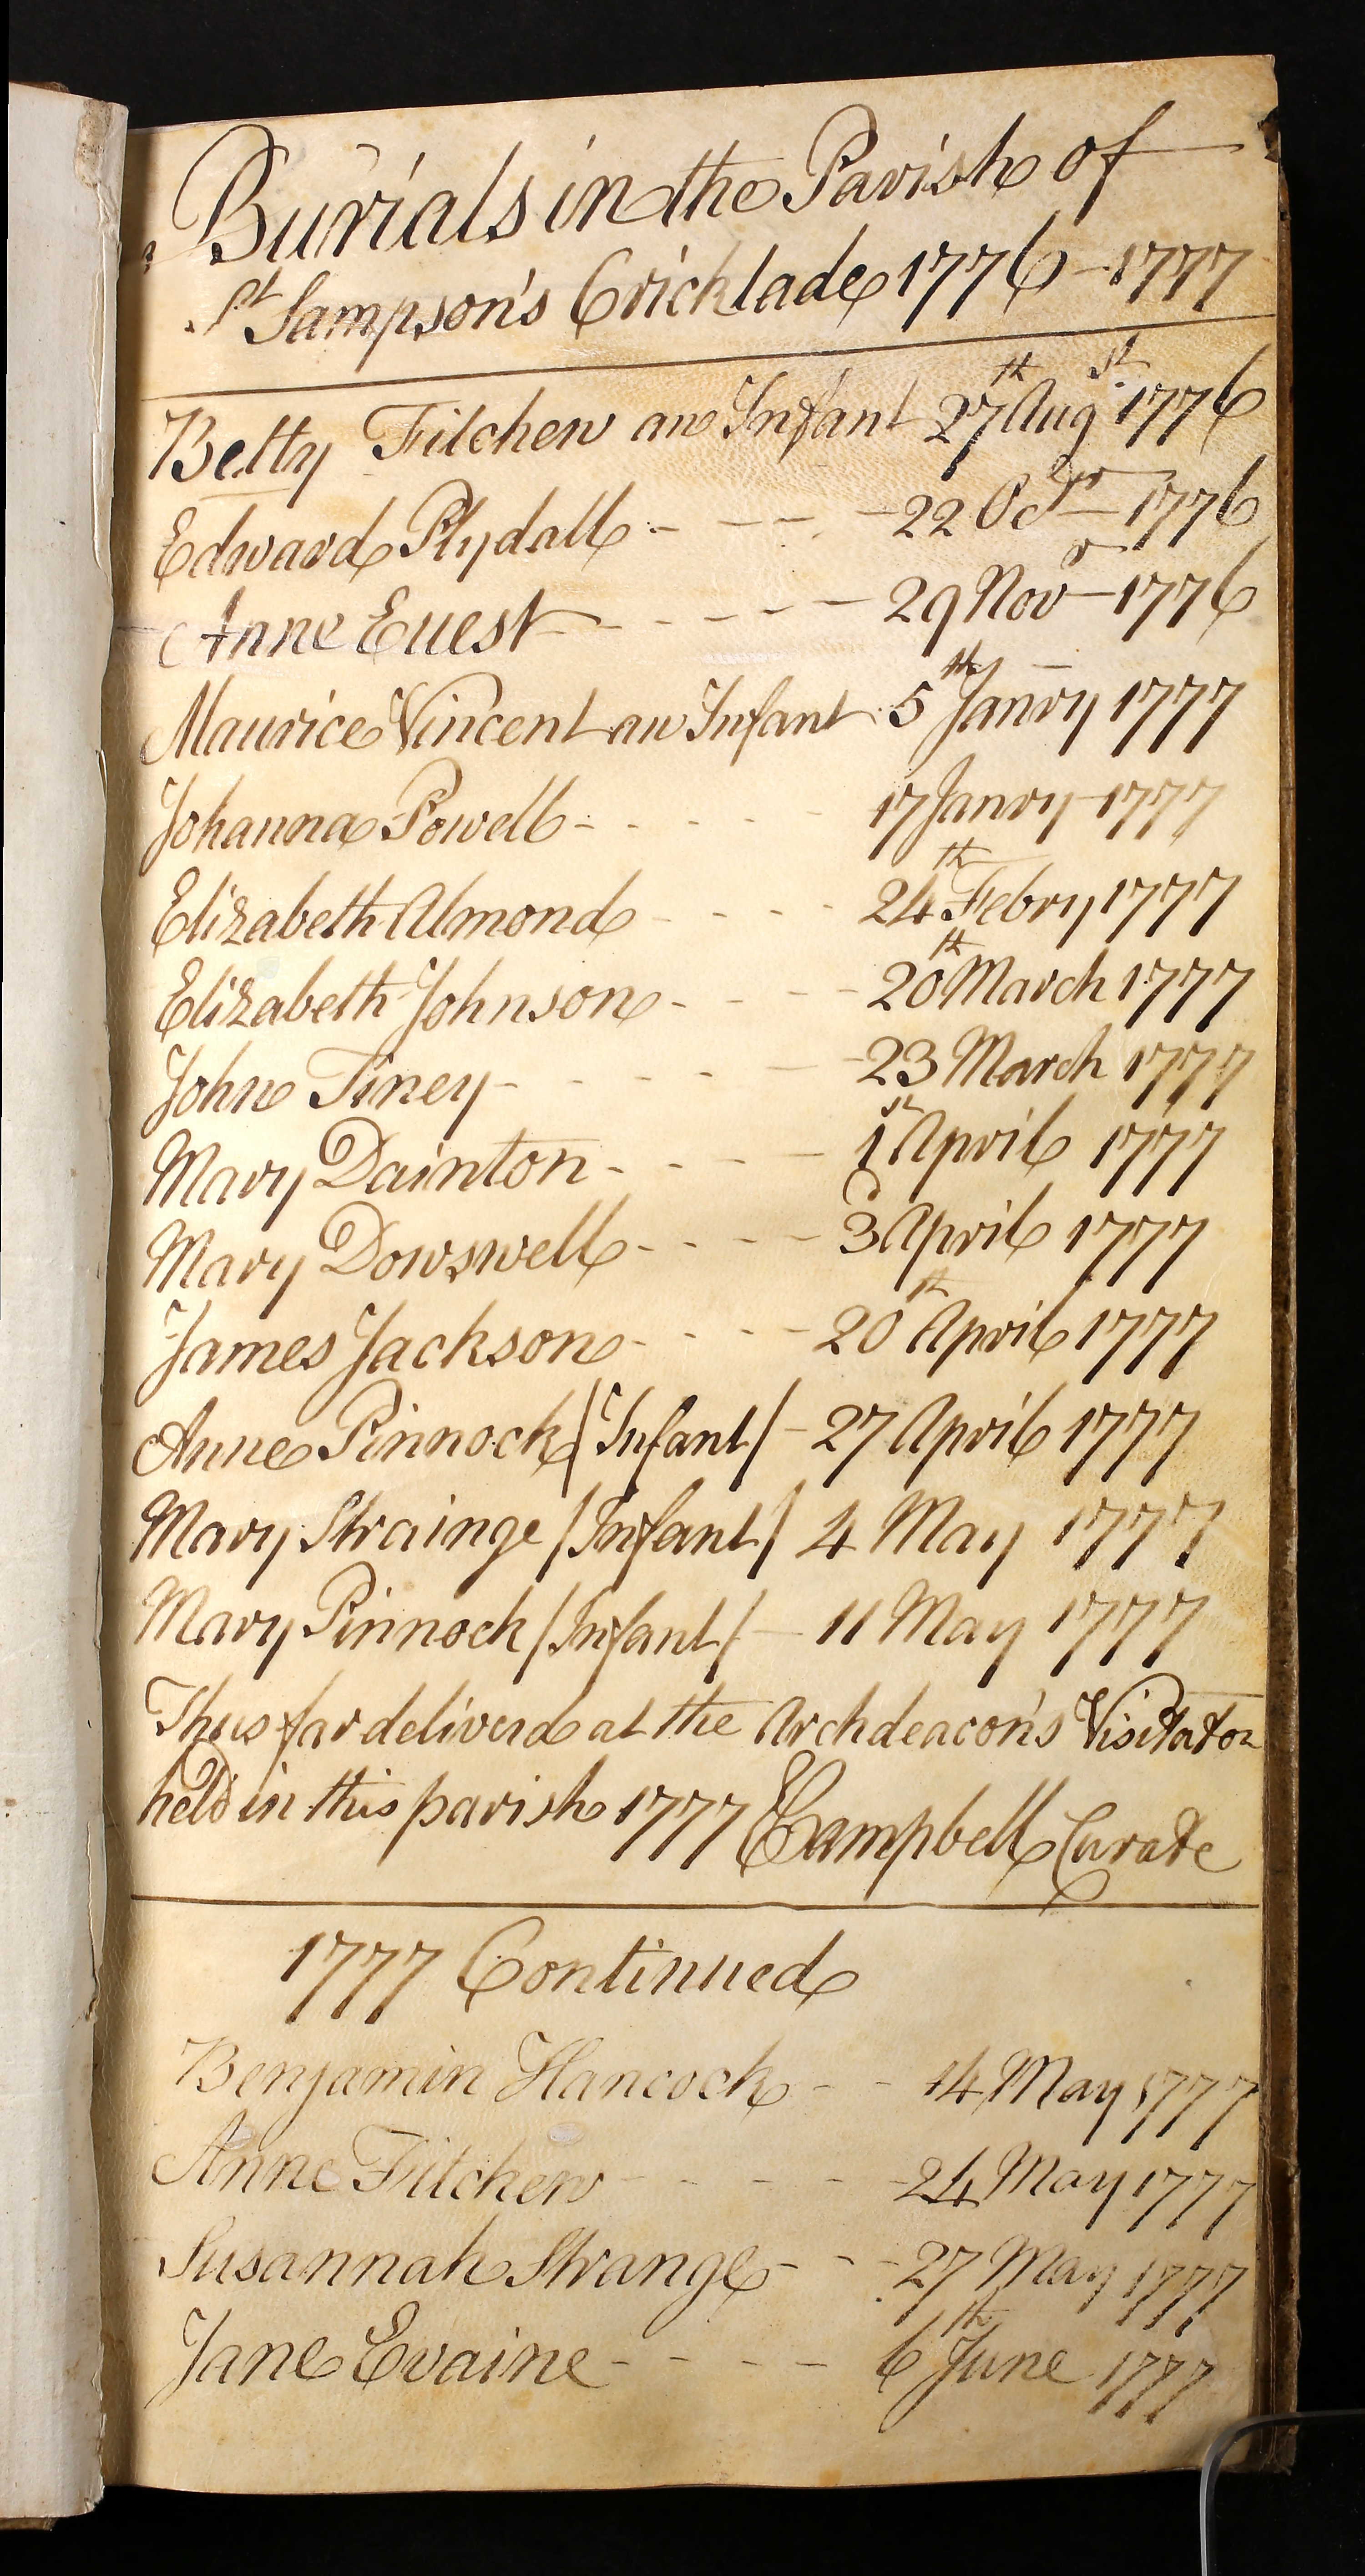 Burials in the Parish of
St Sampson's Cricklade 1776-1777
Betty Fitchew an Infant 27th Augst 1776
Edward Plydall - - - 22 Octbr 1776
Anne Euest - - - - 29 Novr 1776
Maurice Vincent an Infant 5th Janry 1777
Johanna Powell - - - - 17 Janry 1777
Elizabeth Almond - - - - 24th Febry 1777
Elizabeth Johnson - - - - 20th March 1777
John Tiney - - - - - 23 March 1777
Mary Dainton - - - - 1st April 1777
Mary Dowswell - - - - 3d April 1777
James Jackson - - - - 20th April 1777
Anne Pinnock /Infant/ - 27 April 1777
Mary Strainge /Infant/ 4 May 1777
Mary Pinnock /Infant/ - 11 May 1777
Thus far deliverd at the Archdeacon's Visitaton
held in this parish 1777 Campbell Curate
1777 Continued
Benjamin Hancock - - 14 May 1777
Anne Fitchew - - - - 24 May 1777
Susannah Strange - - - 27 May 1777
Jane Evaine - - - - 6th June 1777